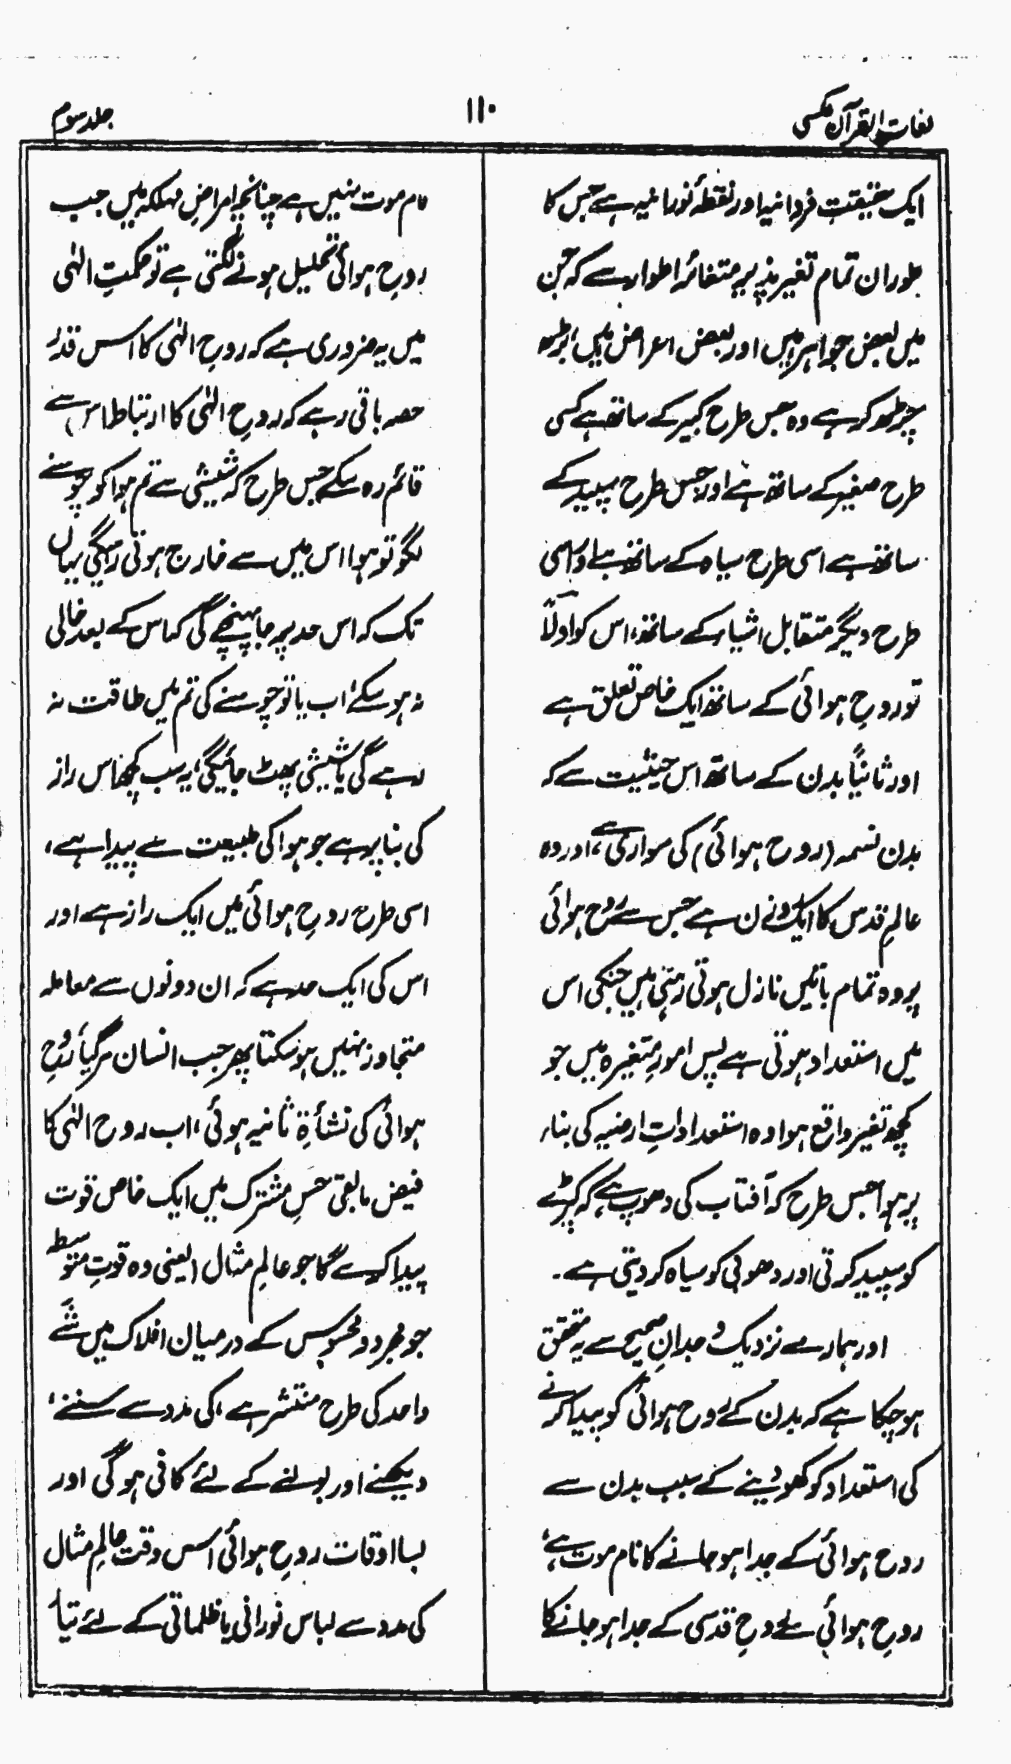 لغات القرآن عکسی
۱۱۰
جلد سوم
ایک حقیقتِ فردانیہ اور نقطۂ نورانیہ ہے جس کا
طور ان تمام تغیر پذیر متغائر اطوار سے کہ جن
میں بعض جواہر ہیں اور بعض اعراض ہیں بڑھ
چڑھ کر ہے وہ جس طرح کبیر کے ساتھ ہے کسی
طرح صغیر کے ساتھ ہے اور جس طرح سپید کے
ساتھ ہے اسی طرح سیاہ کے ساتھ ہے اور اسی
طرح دیگر متقابل اشیاء کے ساتھ، اس کو اولاً
تو روح ہوائی کے ساتھ ایک خاص تعلق ہے
اور ثانیاً بدن کے ساتھ اس حیثیت سے کہ
بدن نسمہ (روح ہوائی) کی سواری ہے، اور وہ
عالمِ قدس کا ایک روزن ہے جس سے روح ہوائی
پر وہ تمام باتیں نازل ہوتی رہتی ہیں جنکی اس
میں استعداد ہوتی ہے پس امورِ متغیرہ میں جو
کچھ تغیر واقع ہوا وہ استعداداتِ ارضیہ کی بناء
پر ہوا جس طرح کہ آفتاب کی دھوپ ہے، کہ کپڑے
کو سپید کرتی اور دھوبی کو سیاہ کر دیتی ہے۔
اور ہمارے نزدیک وجدانِ صحیح سے یہ متحقق
ہو چکا ہے کہ بدن کے روح ہوائی کو پیدا کرنے
کی استعداد کو کھو دینے کے سبب بدن سے
روح ہوائی کے جدا ہو جانے کا نام موت ہے،
روحِ ہوائی سے روحِ قدسی کے جدا ہو جانے کا
نام موت نہیں ہے چنانچہ امراضِ مہلکہ میں جب
روحِ ہوائی تحلیل ہونے لگتی ہے تو حکمتِ الٰہی
میں یہ ضروری ہے کہ روحِ الٰہی کا اس قدر
حصہ باقی رہے کہ روحِ الٰہی کا ارتباط اس سے
قائم رہ سکے جس طرح کہ شیشی سے تم ہوا کو چوسنے
لگو تو ہوا اس میں سے خارج ہوتی رہیگی یہاں
تک کہ اس حد پر جا پہنچے گی کہ اس کے بعد خالی
نہ ہو سکے، اب یا تو چوسنے کی تم میں طاقت نہ
رہے گی یا شیشی پھٹ جائیگی، یہ سب کچھ اس راز
کی بنا پر ہے جو ہوا کی طبیعت سے پیدا ہے،
اسی طرح روحِ ہوائی میں ایک راز ہے اور
اس کی ایک حد ہے کہ ان دونوں سے معاملہ
متجاوز نہیں ہو سکتا پھر جب انسان مر گیا روحِ
ہوائی کی نشأۃِ ثانیہ ہوئی، اب روح الٰہی کا
فیض مابقی حسِ مشترک میں ایک خاص قوت
پیدا کرے گا جو عالمِ مثال (یعنی وہ قوتِ متوسطہ
جو مجرد و محسوس کے درمیان افلاک میں شئے
واحد کی طرح منتشر ہے) کی مدد سے سننے،
دیکھنے اور بولنے کے لئے کافی ہو گی اور
بسا اوقات روحِ ہوائی اس وقت عالمِ مثال
کی مدد سے لباس نورانی یا ظلماتی کے لئے تیار